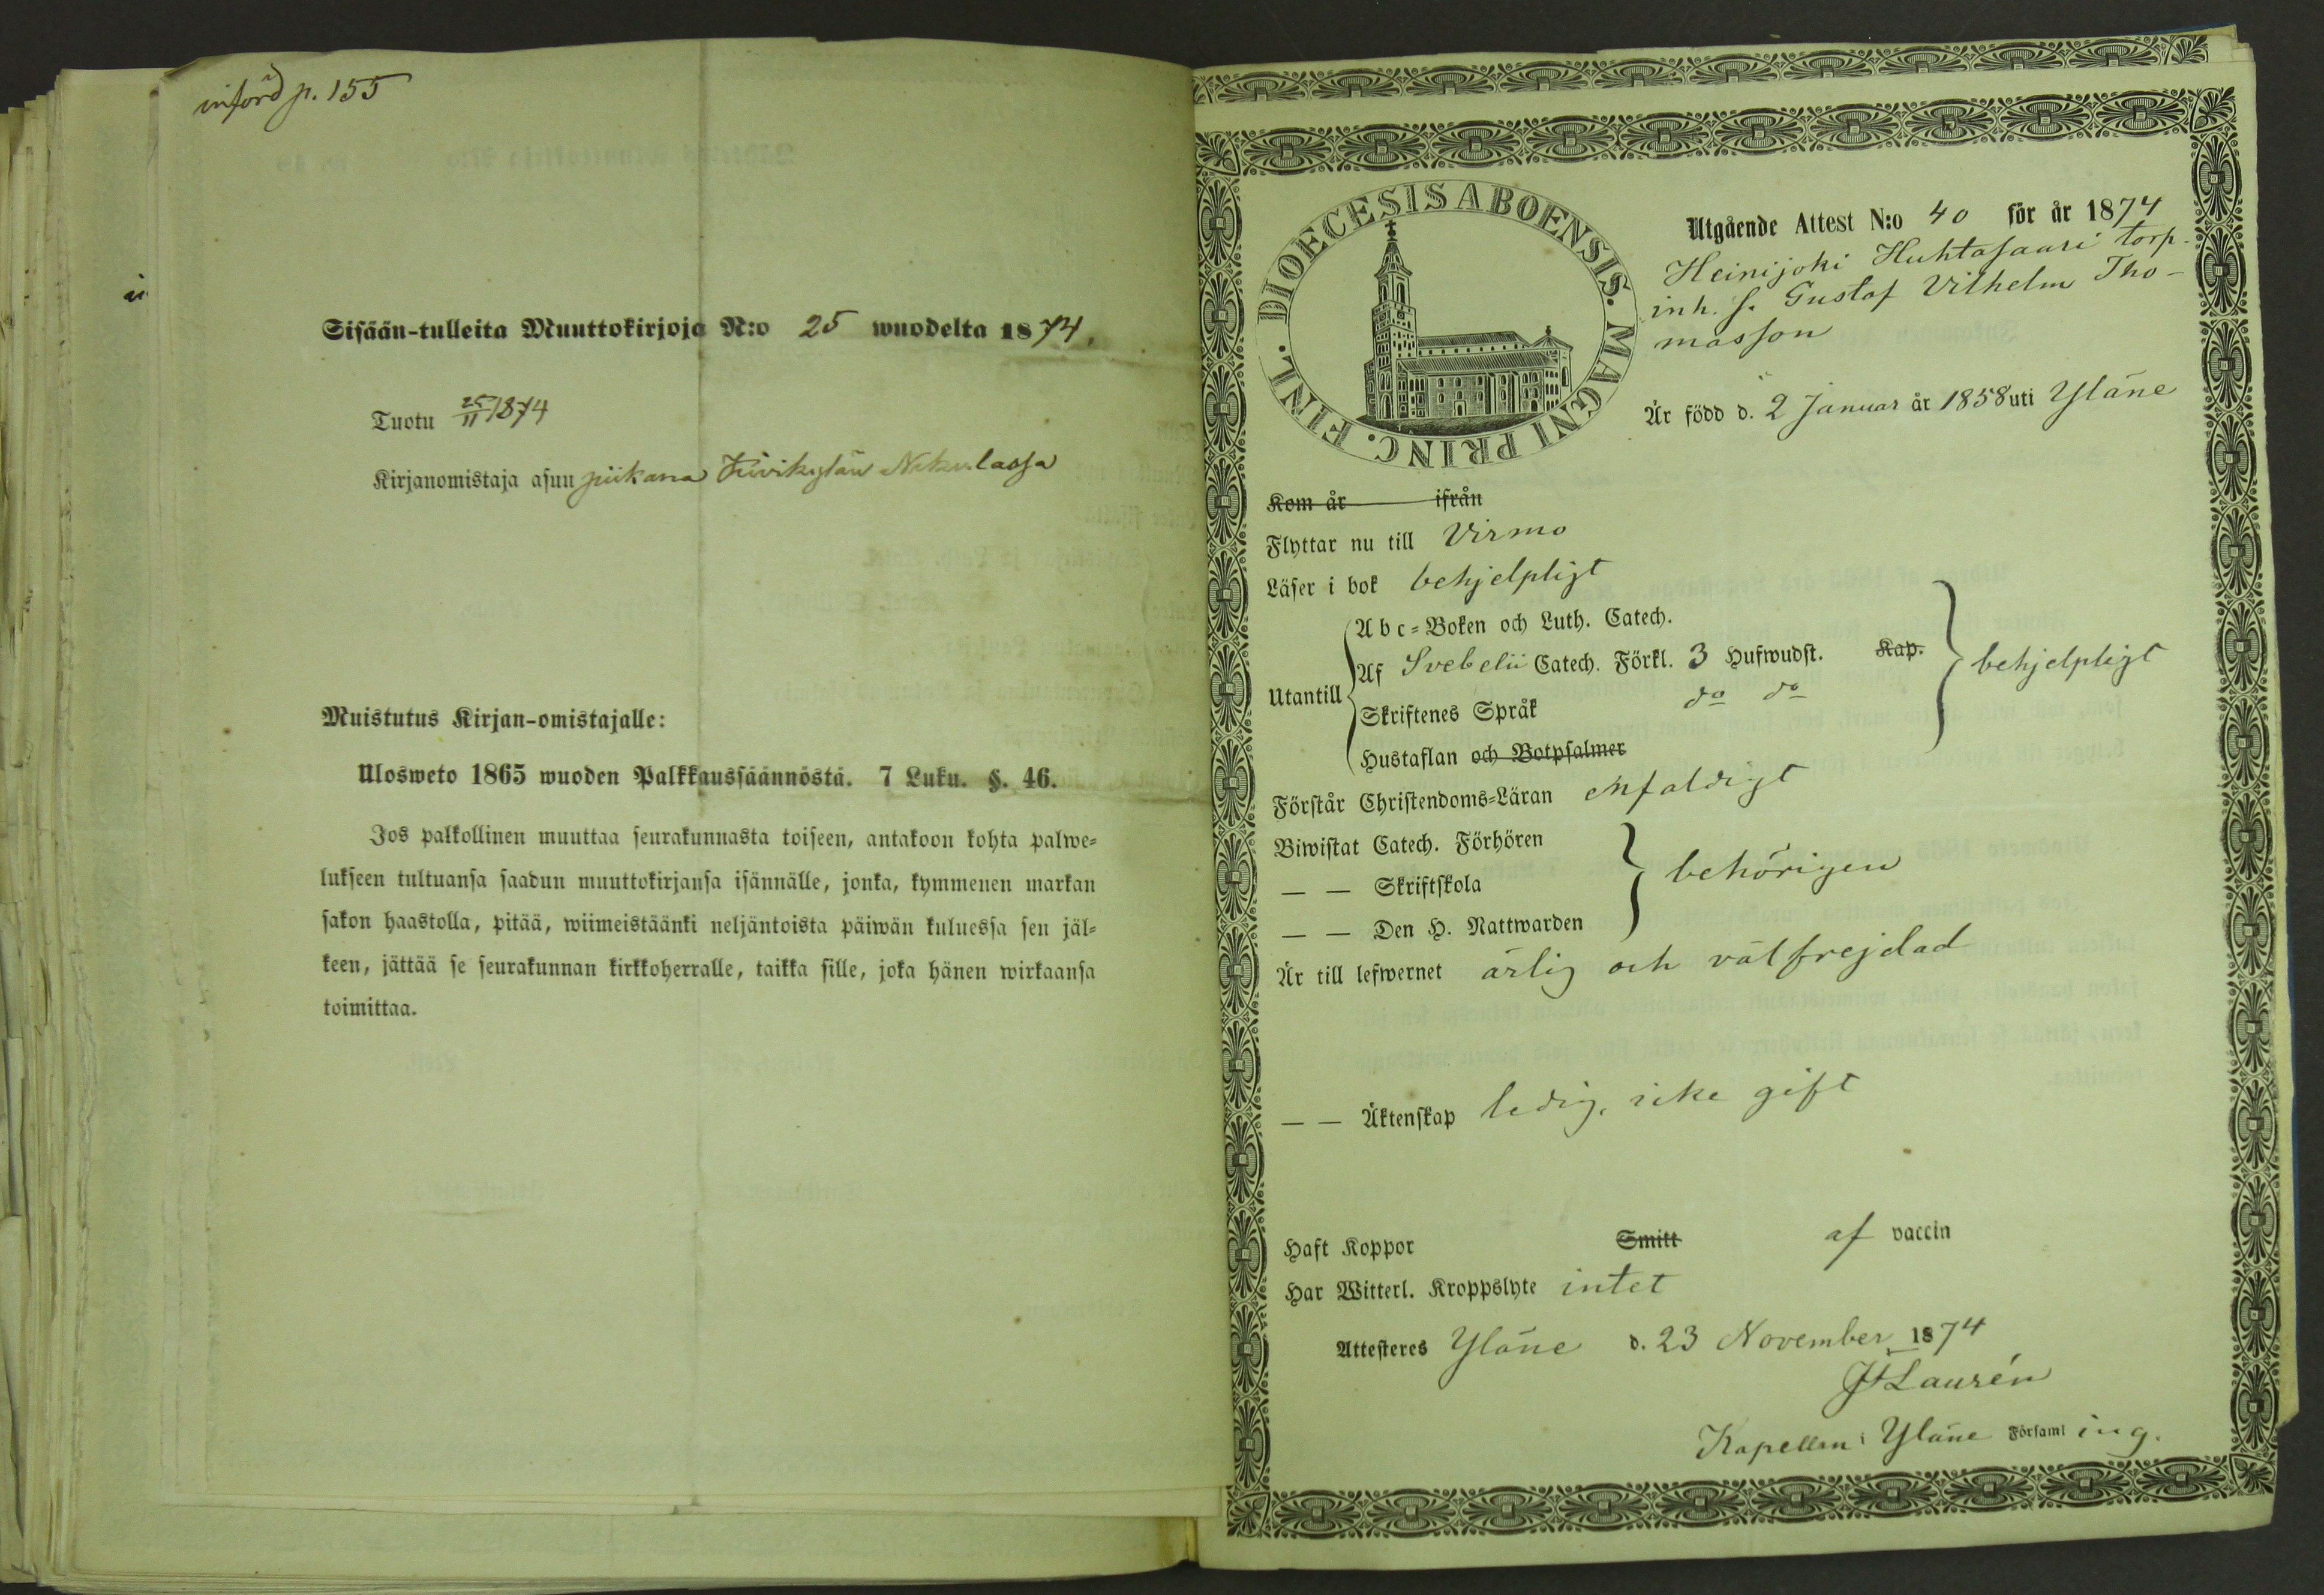 införd p. 155
Sisään-tulleita Muuttokirjoja N:o 25 wuodelta 1874.
Tuotu 25/11 1874
Kirjanomistaja asuu piikana Kivikylän Nikulassa
Muistutus Kirjan-omistajalle:
Ulosweto 1865 wuoden Palkkaussäännöstä. 7 Luku. §. 46.
Jos palkollinen muuttaa seurakunnasta toiseen, antakoon kohta palwe-
lukseen tultuansa saadun muuttokirjansa isännälle, jonka, kymmenen markan
sakon haastolla, pitää, wiimeistäänki neljäntoista päiwän kuluessa sen jäl-
keen, jättää se seurakunnan kirkkoherralle, taikka sille, joka hänen wirkaansa
toimittaa.
DIOECESIS ABOENSIS. MAGNI PRINC. FINL.
Utgående Attest N:o 40 för år 1874
Heinijoki Huhtasaari torp-
inh. s. Gustaf Vilhelm Tho-
masson
Är född d. 2 Januar år 1858 uti Yläne
Kom år ifrån
Flyttar nu till Virmo
Läser i bok behjelpligt
Utantill
Abc-Boken och Luth. Catech.
Af Svebelii Catech. Förkl. 3 Hufwudst. Kap.
behjelpligt
Skriftenes Språk do do
Hustaflan och Botpsalmer
Förstår Christendoms-Läran enfaldigt
Biwistat Catech. Förhören
— — Skriftskola
behörigen
— — Den H. Nattwarden
Är till lefwernet ärlig och välfrejdad
— — Äktenskap ledig, icke gift
Haft Koppor Smitt af vaccin
Har Witterl. Kroppslyte intet
Attesteres Yläne d. 23 November 1874
Laurén
Kapellan i Yläne Församling.